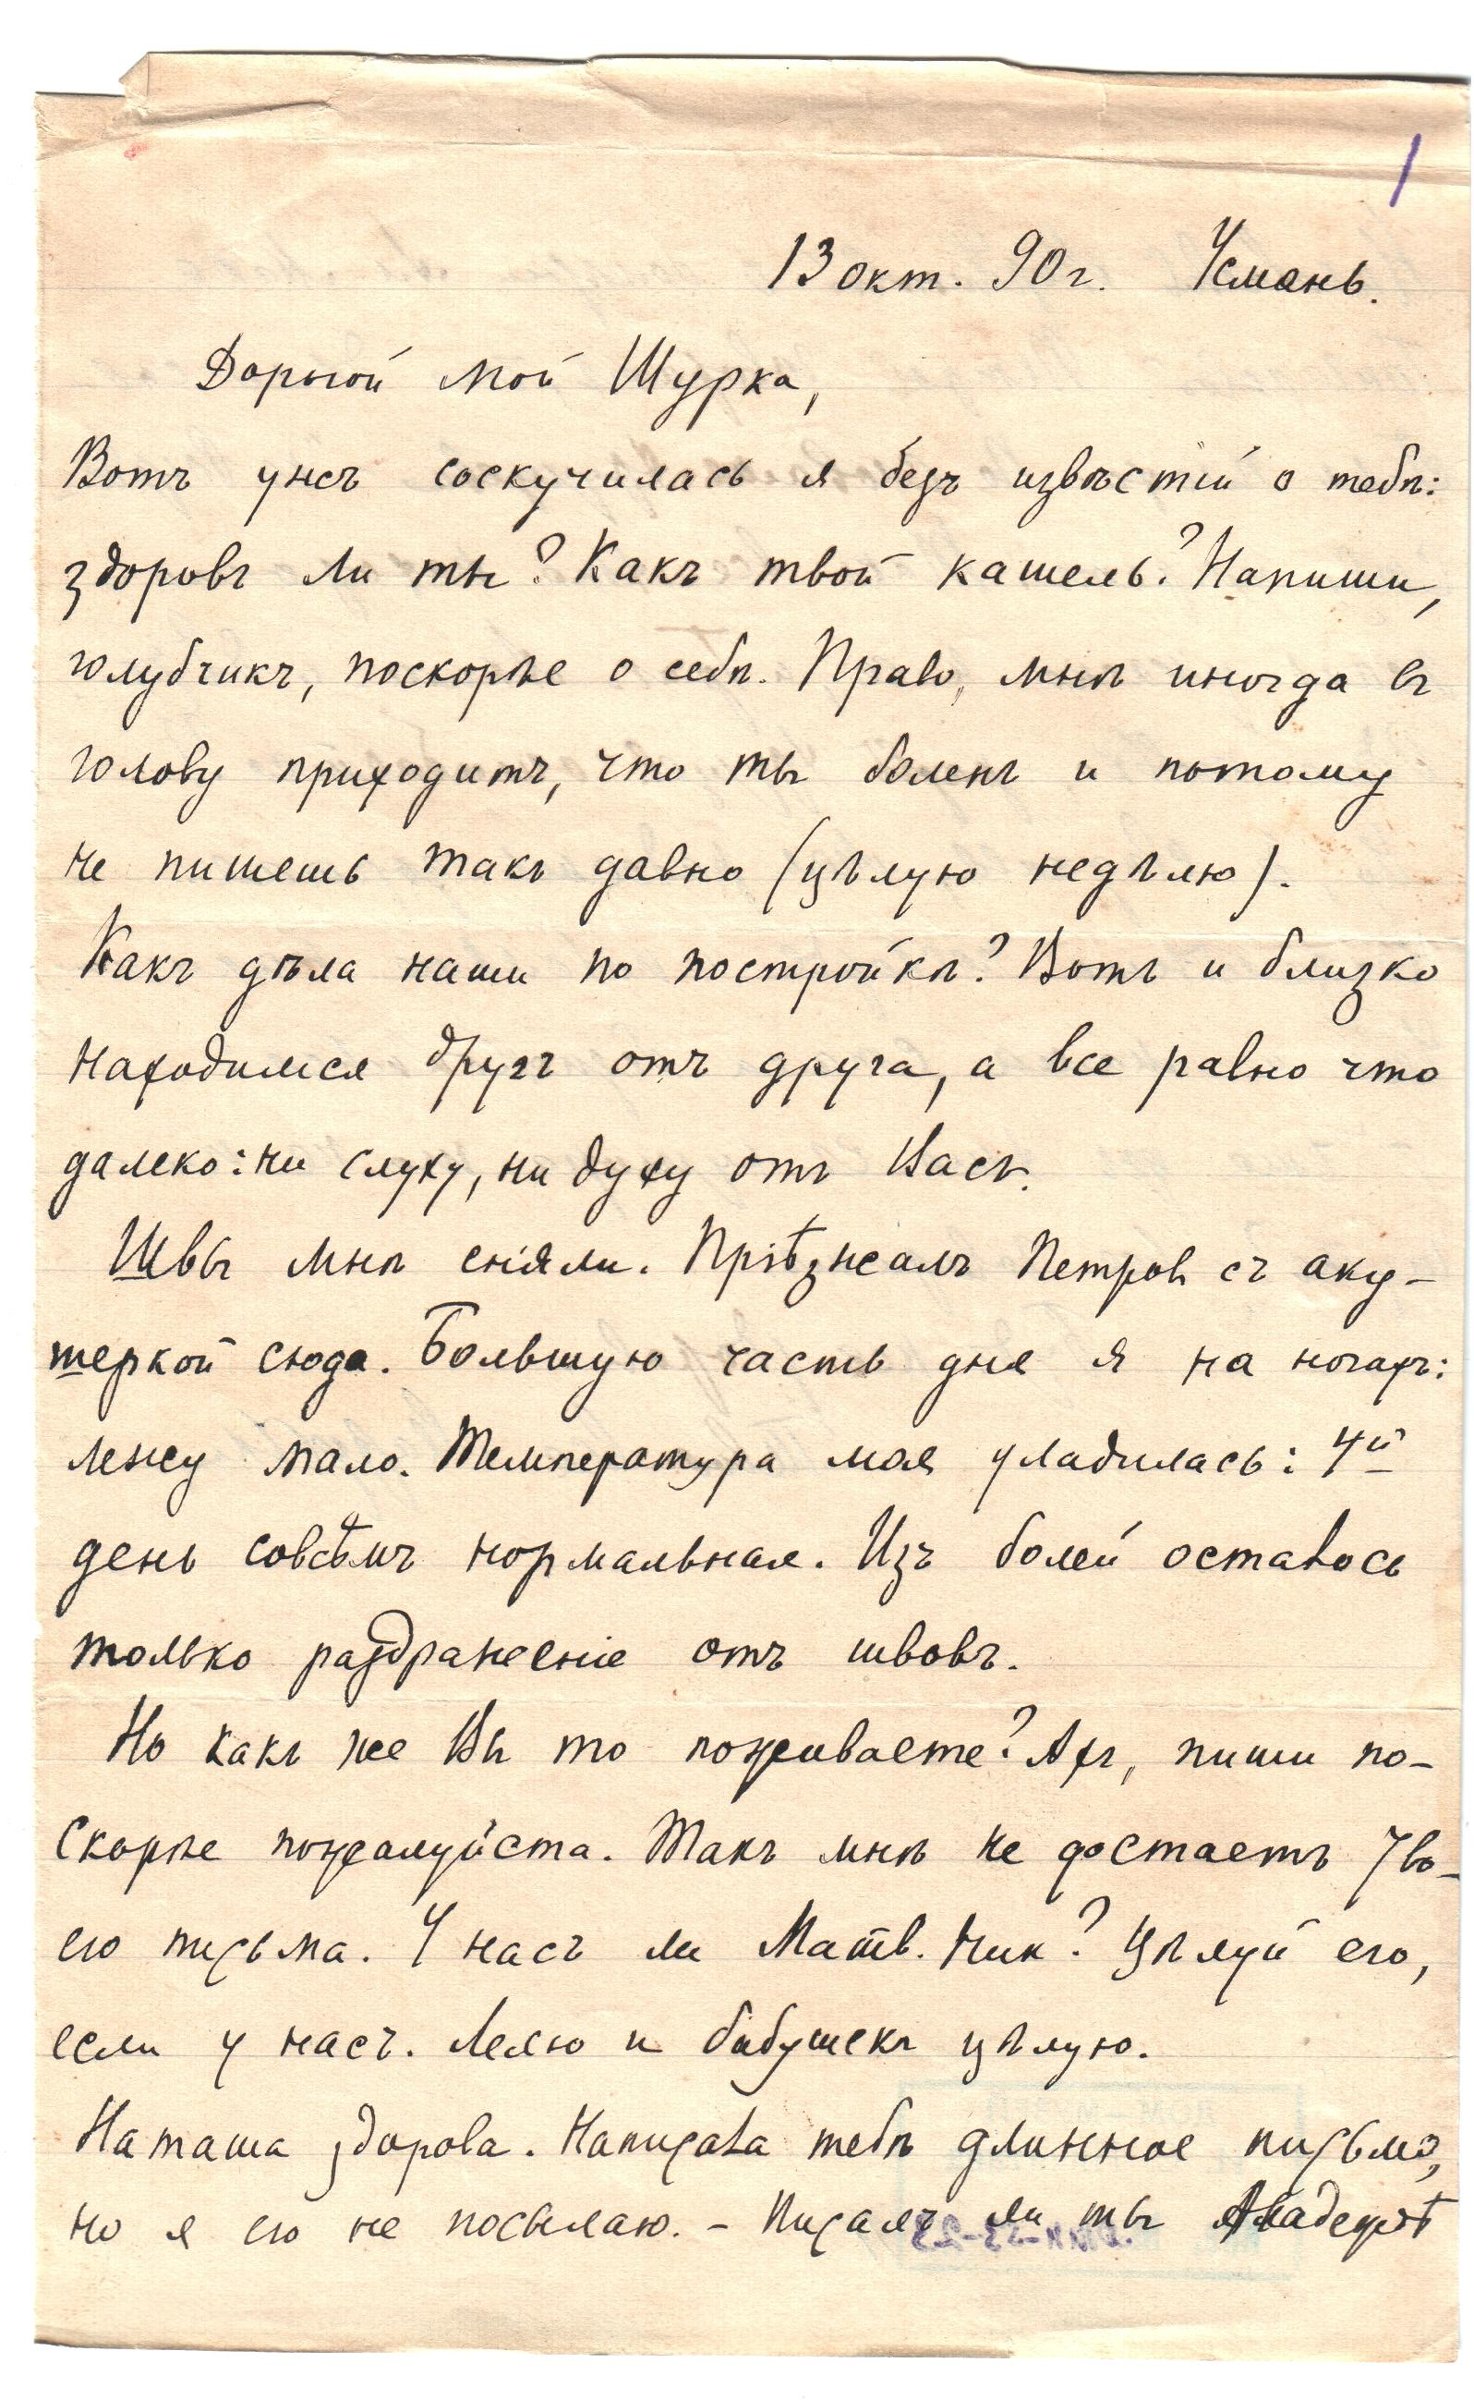 1
13 окт. 90 г. Усмань.
Дорогой мой Шурка,
Вотъ ужъ соскучилась я безъ извѣстій о тебѣ:
здоровъ ли ты? Какъ твой кашель? Напиши,
голубчикъ, поскорѣе о себѣ. Право, мнѣ иногда въ
голову приходитъ, что ты боленъ и потому
не пишешь такъ давно (цѣлую недѣлю).
Какъ дѣла наши по постройкѣ? Вотъ и близко
находимся другъ отъ друга, а все равно что
далеко: ни слуху, ни духу отъ Васъ.
Швы мнѣ сняли. Пріѣзжалъ Петров съ аку-
шеркой сюда. Большую часть дня я на ногахъ:
лежу мало. Температура моя уладилась: 4й
день совсѣмъ нормальная. Изъ болей осталось
только раздраженіе отъ швовъ.
Но какъ же Вы то поживаете? Ахъ, пиши по-
скорѣе пожалуйста. Такъ мнѣ не достаетъ Тво-
его письма. У насъ ли Матв. Ник? Цѣлуй его,
если у насъ. Лелю и бабушекъ цѣлую.
Наташа здорова. Написала тебѣ длинное письмо,
но я его не посылаю. – Писалъ ли ты